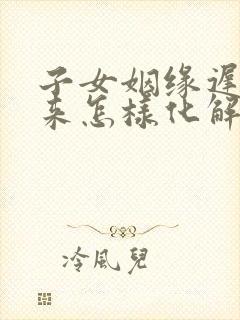 子女姻缘遲
来怎樣化解
冷風兒